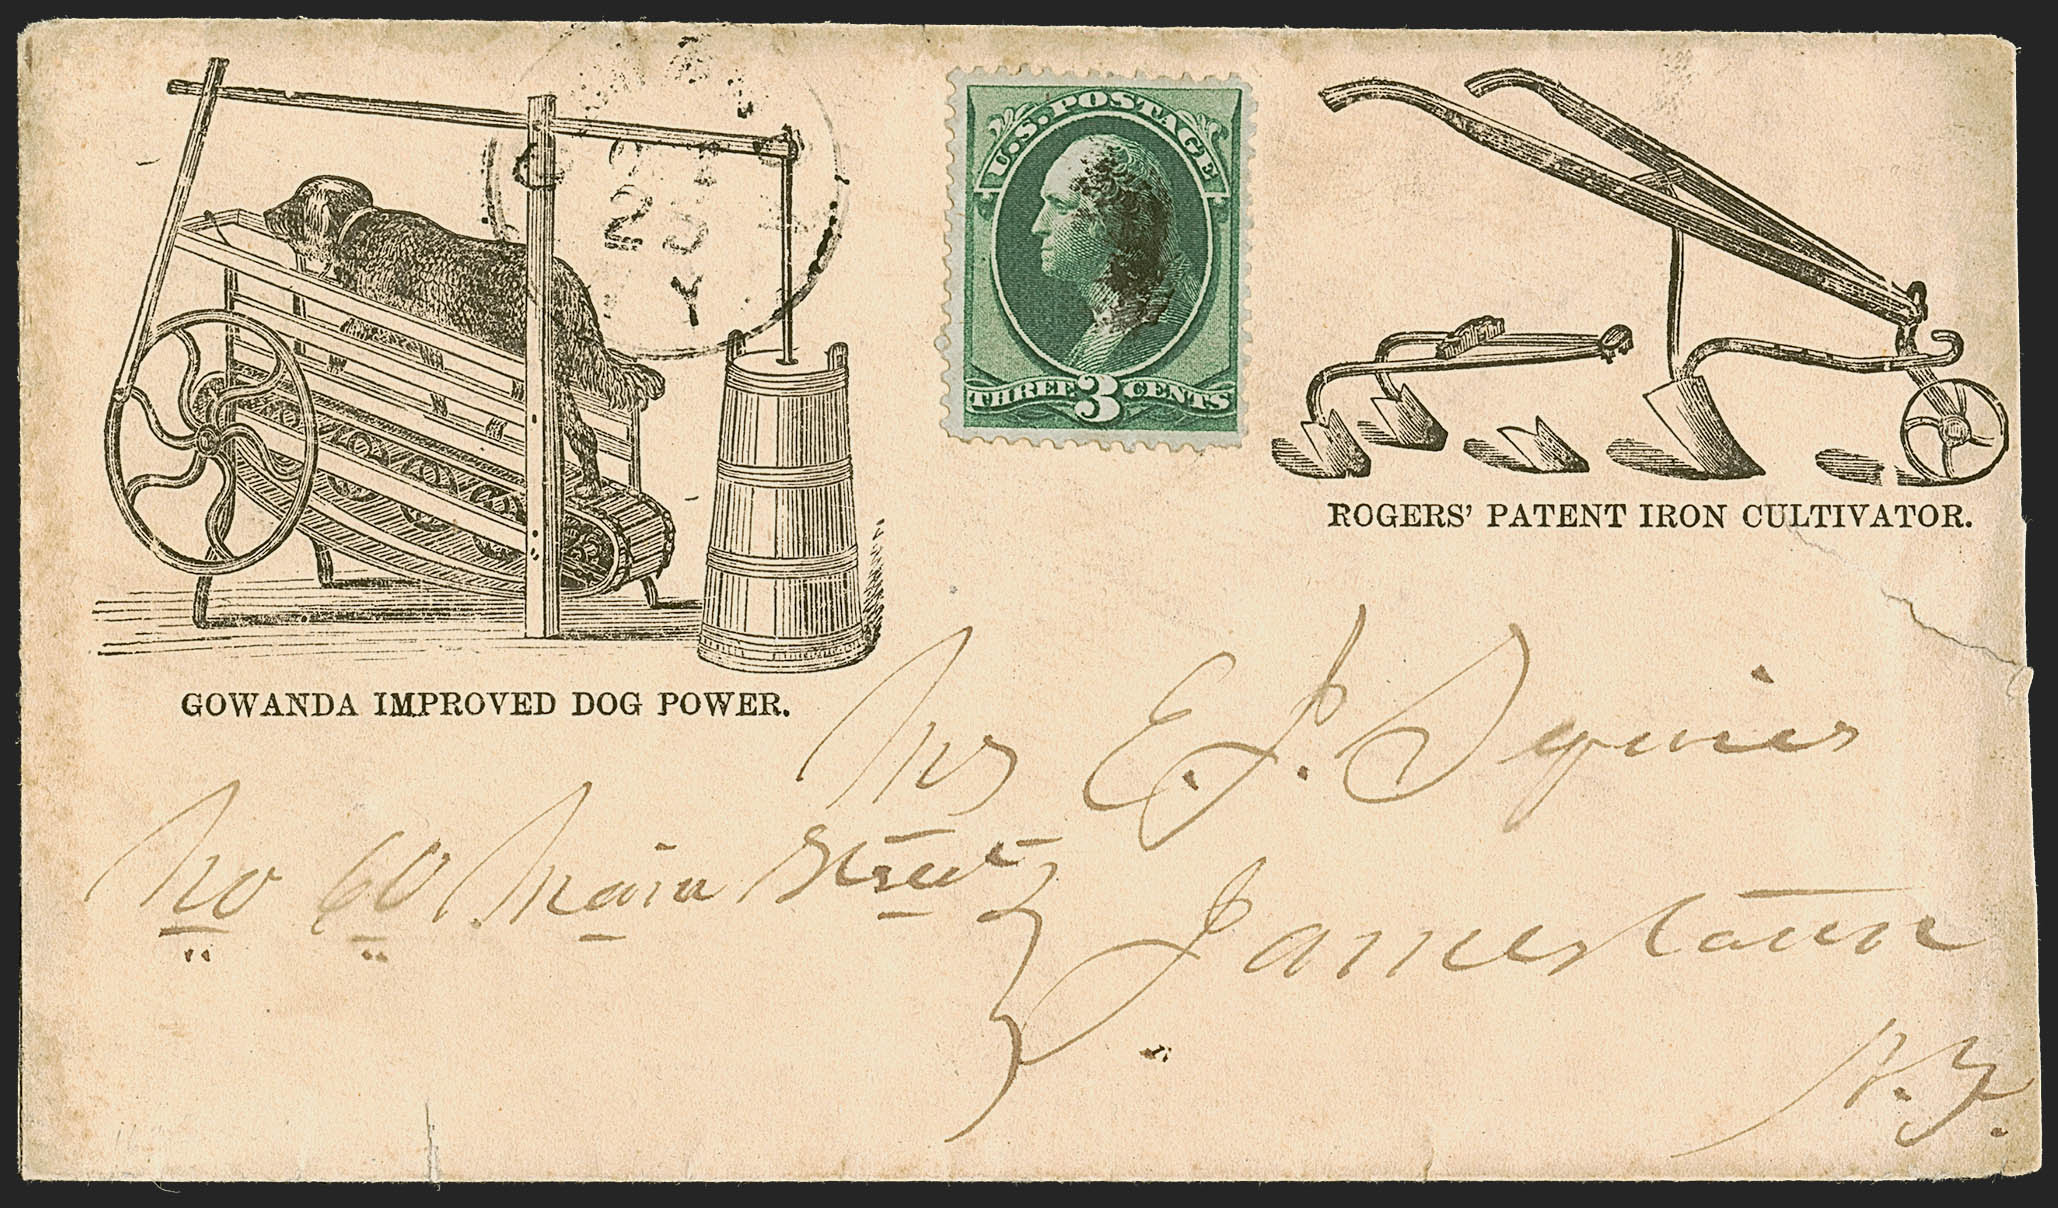 U.S. POSTAGE
THREE 3 CENTS
25
Y
GOWANDA IMPROVED DOG POWER.
ROGERS' PATENT IRON CULTIVATOR.
E. J.
No 60 Main Street
Jamestown
N.Y.